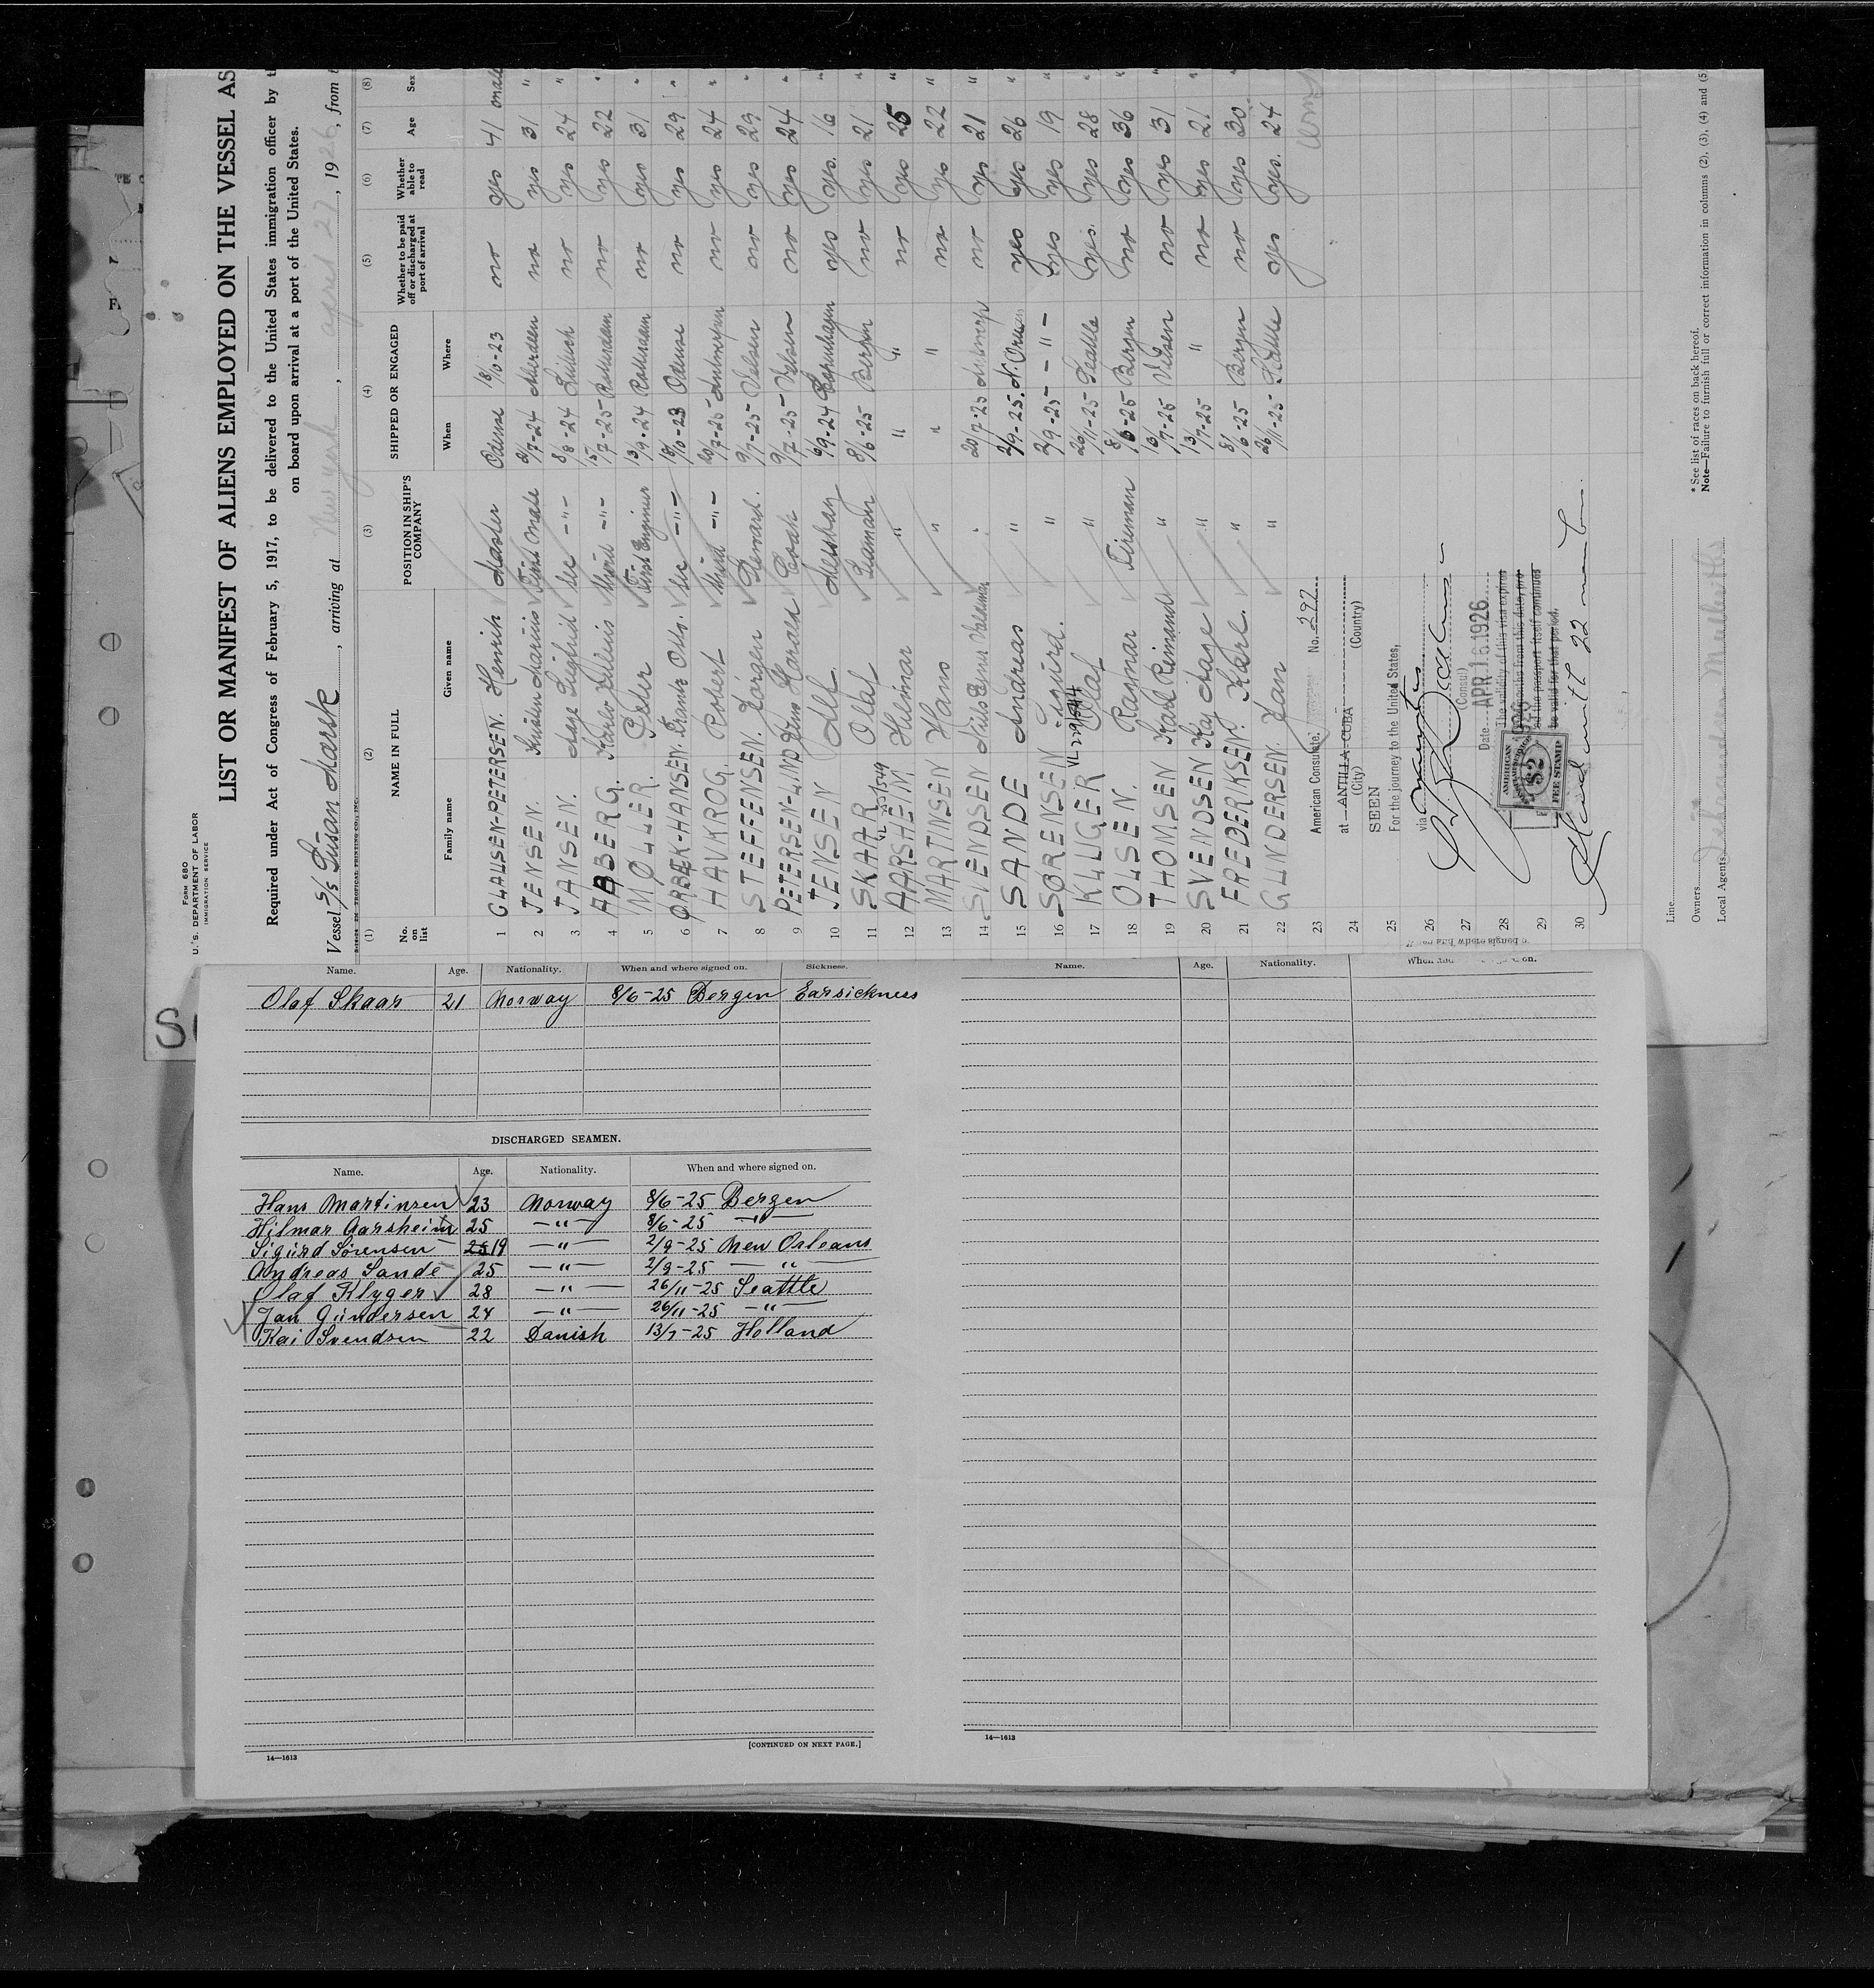 FORM 680
U. S. DEPARTMENT OF LABOR
IMMIGRATION SERVICE
LIST OR MANIFEST OF ALIENS EMPLOYED ON THE VESSEL AS
Required under Act of Congress of February 5, 1917, to be delivered to the United States immigration officer by t
on board upon arrival at a port of the United States.
Vessel S/S Gusan Marsk, arriving at New York, april 27, 1926, from t
(1) (2) (3) (4) (5) (6) (7) (8)
No. on list NAME IN FULL POSITION IN SHIP'S COMPANY SHIPPED OR ENGAGED Whether to be paid off or discharged at port of arrival Whether able to read Age Sex
Family name Given name When Where
1 CLAUSEN-PETERSEN. Henrik Master Odense 18/10-23 no yes 41 male
2 JENSEN. Marius First Mate 2/7-24 Aberdeen no yes 31 "
3 JANSEN. Aage Sigfrid sec -"- 8/8-24 Lübeck no yes 24 "
4 ABBERG. Julius third -"- 15/7-25 Rotterdam no yes 22 "
5 MØLLER. Peder First Engineer 13/9-24 Rotterdam no yes 31 "
6 ØRBÆK-HANSEN. Frantz Otto. sec -"- 18/10-23 Odense no yes 29 "
7 HAVKROG. Robert third -"- 20/7-25 Antwerpen no yes 24 "
8 STEFFENSEN. Jørgen Steward. 9/7-25 Velsen no yes 29 "
9 PETERSEN-LIND Jens Harald Cook 9/7-25 Velsen no yes 24 "
10 JENSEN Alf. Messboy 6/9-24 Copenhagen yes yes. 16 "
11 SKAAR Olaf Seaman 8/6-25 Bergen no yes 21 "
12 AARSHEIM. Hilmar " " " no yes 25 "
13 MARTINSEN Hans " " " no yes 22 "
14 SVENDSEN Niels Valdemar " 20/7-25 Antwerp no yes 21 "
15 SANDE Andreas " 2/9-25. N. Orleans yes yes 26 "
16 SØRENSEN Sigurd. " 2/9-25 - " - yes yes 19 "
17 KLUGER Olaf " 26/11-25 Seattle yes. yes 28 "
18 OLSEN. Ragnar Fireman 8/6-25 Bergen no yes 36 "
19 THOMSEN Karl Reimand " 13/7-25 Velsen no yes 31 "
20 SVENDSEN Kaj Aage " 13/7-25 " no yes 21 "
21 FREDERIKSEN. Karl. " 8/6-25 Bergen no yes 30 "
22 GUNDERSEN. Jan " 26/11-25 Seattle yes yes. 24
23 American Consulate, No. 297
24 at ANTILLA CUBA
(City) (Country)
25 SEEN
For the journey to the United States,
26 via
27 (Consul)
Date APR 16 1926
28 The validity of this visa expires
months from this date, pro
29 the passport itself continues
be valid for that period.
AMERICAN
$2
FEE STAMP
30 with 22 members.
Line
Owners
Local Agents
* See list of races on back hereof.
Note—Failure to furnish full or correct information in columns (2), (3), (4) and (5
Name. Age. Nationality. When and where signed on. Sickness.
Olaf Skaar 21 Norway 8/6-25 Bergen Earsickness
DISCHARGED SEAMEN.
Name. Age. Nationality. When and where signed on.
Hans Martinsen 23 Norway 8/6-25 Bergen
Hilmar Aarsheim 25 -"- 8/6-25 -"-
Sigurd Sørensen 19 -"- 2/9-25 New Orleans
Andreas Sande 25 -"- 2/9-25 -"-
Olaf Klyger 28 -"- 26/11-25 Seattle
Jan Gundersen 24 -"- 26/11-25 -"-
Kai Svendsen 22 Danish 13/7-25 Holland
14—1613
[CONTINUED ON NEXT PAGE.]
Name. Age. Nationality. When and on.
14—1613